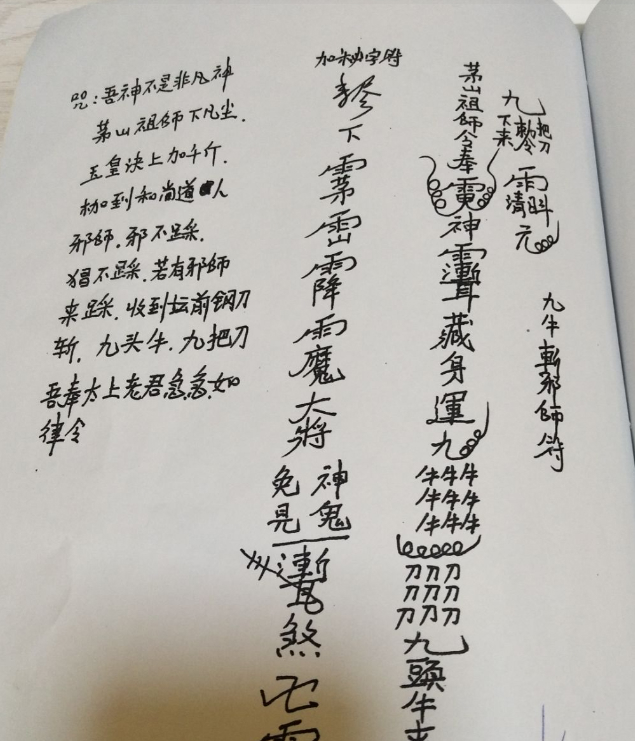 九牛斬邪師符
九把刀
下來
清
元
茅山祖師令奉
神
藏身運九
牛牛牛
牛牛牛
牛牛牛
刀刀刀
刀刀刀
刀刀刀
九頭牛來
下
降
魔
大將
神鬼
免見
煞
咒:吾神不是非凡神
茅山祖師下凡尘.
五皇决上加千斤.
枷到和尚道人
邪師.邪不踩.
猖不踩.若有邪師
来踩.收到坛前钢刀
斩,九头牛.九把刀
吾奉太上老君急急.如
律令